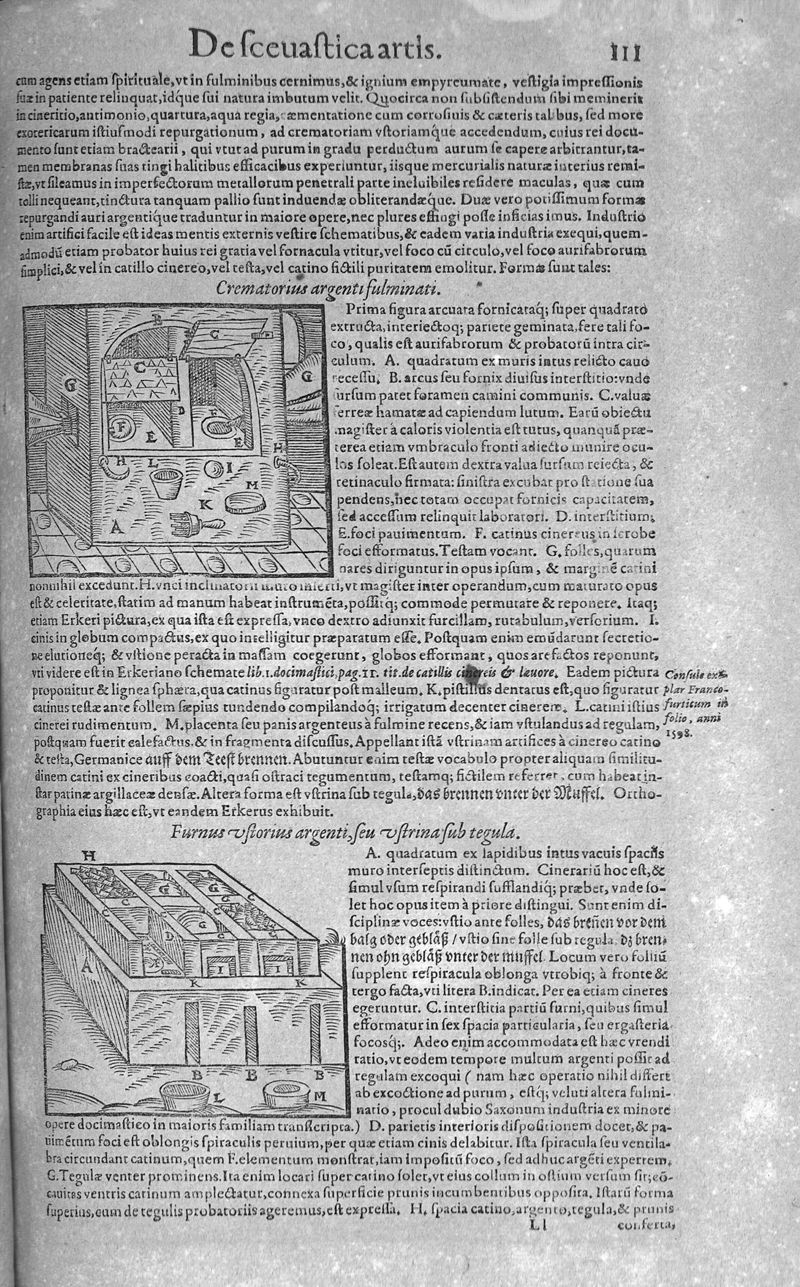 De sceuastica artis. 111
cum agens etiam spirituale, vt in fulminibus cernimus, & ignium empyreumate, vestigia impressionis
suæ in patiente relinquat, idq́ue sui natura imbutum velit. Quocirca non subsistendum sibi meminerit
in cineritio, antimonio, quartura, aqua regia, cæmentatione cum corrosiuis & cæteris talibus, sed more
exotericarum istiusmodi repurgationum, ad crematoriam vstoriamq́ue accedendum, cuius rei docu-
mento sunt etiam bractearii, qui vtut ad purum in gradu perductum aurum se capere arbitrantur, ta-
men membranas suas tingi halitibus efficacibus experiuntur, iisque mercurialis naturæ interius remi-
stæ, vt sileamus in imperfectorum metallorum penetrali parte ineluibiles residere maculas, quæ cum
tolli nequeant, tinctura tanquam pallio sunt induendæ obliterandæque. Duæ vero potissimum formæ
repurgandi auri argentique traduntur in maiore opere, nec plures effingi posse inficias imus. Industrio
enim artifici facile est ideas mentis externis vestire schematibus, & eadem varia industria exequi, quem-
admodū etiam probator huius rei gratia vel fornacula vtitur, vel foco cū circulo, vel foco aurifabrorum
simplici, & vel in catillo cinereo, vel testa, vel catino fictili puritatem emolitur. Formæ sunt tales:
Crematorius argenti fulminati.
Prima figura arcuata fornicataq́; super quadrato
extructa, interiectoq́; pariete geminata, fere tali fo-
co, qualis est aurifabrorum & probatorū intra cir-
culum. A. quadratum ex muris intus relicto cauo
recessu. B. arcus seu fornix diuisus interstitio: vnde
sursum patet foramen camini communis. C. valuæ
ferreæ hamatæ ad capiendum lutum. Earū obiectu
magister à caloris violentia est tutus, quanquā præ-
terea etiam vmbraculo fronti adiecto munire ocu-
los soleat. Est autem dextra valua sursum reiecta, &
retinaculo firmata: sinistra excubat pro statione sua
pendens, nec totam occupat fornicis capacitatem,
sed accessum relinquit laboratori. D. interstitium.
E. foci pauimentum. F. catinus cinereus in scrobe
foci efformatus. Testam vocant. G. folles, quarum
nares diriguntur in opus ipsum, & marginē catini
nonnihil excedunt. H. vnci inclinatorii muro inserti, vt magister inter operandum, cum maturato opus
est & celeritate, statim ad manum habeat instrumēta, possitq́; commode permutare & reponere. Itaq;
etiam Erkeri pictura, ex qua ista est expressa, vnco dextro adiunxit furcillam, rutabulum, versorium. I.
cinis in globum compactus, ex quo intelligitur præparatum esse. Postquam enim emūdarunt secretio-
ne elutioneq́; & vstione peracta in massam coegerunt, globos efformant, quos arefactos reponunt,
vti videre est in Erkeriano schemate lib. 1. docimastici, pag. 11. tit. de catillis cinereis & leuore. Eadem pictura
proponitur & lignea sphæra, qua catinus figuratur post malleum. K. pistillus dentatus est, quo figuratur
catinus testæ ante follem sæpius tundendo compilandoq́; irrigatum decenter cinerem. L. catini istius
cinerei rudimentum. M. placenta seu panis argenteus à fulmine recens, & iam vstulandus ad regulam,
postquam fuerit calefactus, & in fragmenta discussus. Appellant istā vstrinam artifices à cinereo catino
& testa, Germanice auff dem Teest brennen. Abutuntur enim testæ vocabulo propter aliquam similitu-
dinem catini ex cineribus coacti, quasi ostraci tegumentum, testamq́; fictilem referret, cum habeat in-
star patinæ argillaceæ densæ. Altera forma est vstrina sub tegula, das brennen vnter der Muffel. Ortho-
graphia eius hæc est, vt eandem Erkerus exhibuit.
Consule ex-
plar Franco-
furticum in
folio, anni
1598.
Furnus vstorius argenti, seu vstrina sub tegula.
A. quadratum ex lapidibus intus vacuis spaciis
muro interseptis distinctum. Cinerariū hoc est, &
simul vsum respirandi sufflandiq́; præbet, vnde so-
let hoc opus item à priore distingui. Sunt enim di-
sciplinæ voces: vstio ante folles, das breñen vor dem
balg oder gebläß / vstio sine folle sub regula, dz bren-
nen ohn gebläß vnter der muffel. Locum vero folliū
supplent respiracula oblonga vtrobiq́; à fronte &
tergo facta, vti litera B. indicat. Per ea etiam cineres
egeruntur. C. interstitia partiū furni, quibus simul
efformatur in sex spacia particularia, seu ergasteria
focosq́;. Adeo enim accommodata est hæc vrendi
ratio, vt eodem tempore multum argenti possit ad
regulam excoqui ( nam hæc operatio nihil differt
ab excoctione ad purum, estq́; veluti altera fulmi-
natio, procul dubio Saxonum industria ex minore
opere docimastico in maioris familiam transcripta.) D. parietis interioris dispositionem docet, & pa-
uimētum foci est oblongis spiraculis peruium, per quæ etiam cinis delabitur. Ista spiracula seu ventila-
bra circundant catinum, quem F. elementum monstrat, iam impositū foco, sed adhuc argēti expertem.
G. Tegulæ venter prominens. Ita enim locari super catino solet, vt eius collum in ostium versum sit; eō-
cauitas ventris catinum amplectatur, connexa superficie prunis incumbentibus opposita. Istarū forma
superius, cum de tegulis probatoriis ageremus, est expressa. H. spacia catino, argento, tegula, & prunis
Ll conferta,